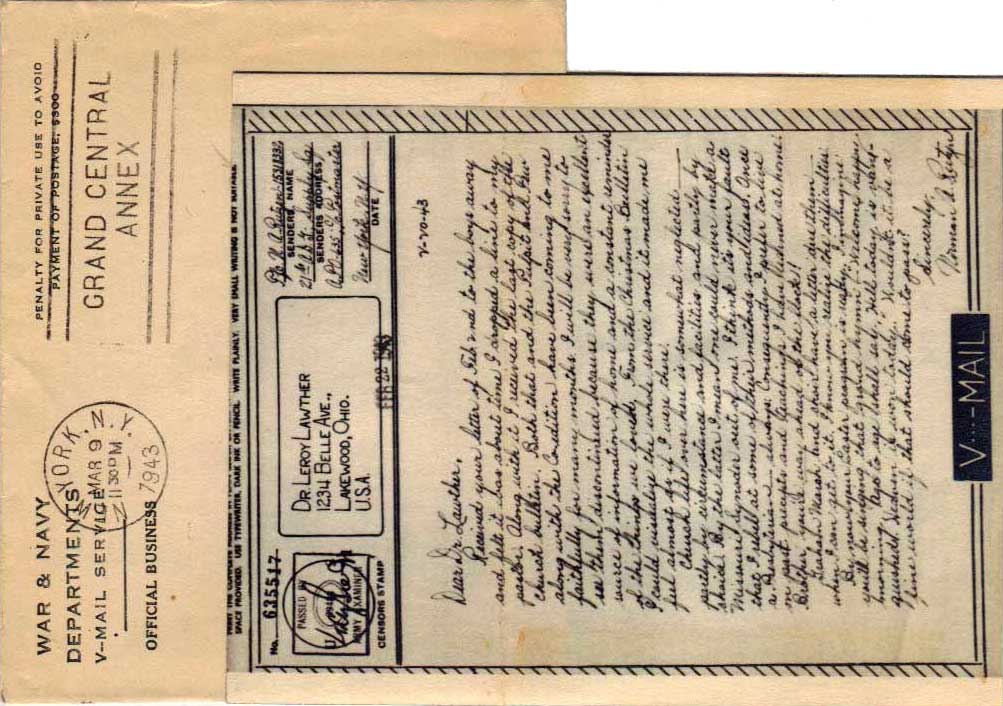 WAR & NAVY
DEPARTMENTS
V-MAIL SERVICE
OFFICIAL BUSINESS
PENALTY FOR PRIVATE USE TO AVOID
PAYMENT OF POSTAGE, $300
GRAND CENTRAL
ANNEX
YORK, N. Y.
MAR 9
11 30 PM
1943
SPACE PROVIDED. USE TYPEWRITER, DARK INK OR PENCIL. WRITE PLAINLY. VERY SMALL WRITING IS NOT SUITABLE.
No. 635517
PASSED BY
ARMY EXAMINER
CENSORS STAMP
DR LEROY LAWTHER
1234 BELLE AVE.,
LAKEWOOD, OHIO.
U.S.A.
FEB 22 1943
SENDERS NAME
SENDERS ADDRESS
A.P.O. 635, % Postmaster
New York, N.Y.
DATE
V-20-43
Dear Dr. Lawther,
Received your letter of Feb 2nd to the boys away
and felt it was about time I dropped a line to my
pastor. Along with it I received the last copy of the
church bulletin. Both that and the Pulpit and Pew
along with the Coalition have been coming to me
faithfully for many months. I will be very sorry to
see them discontinued because they were an excellent
source of information of home and a constant reminder
of the things we love. From the Christmas bulletin
I could visualize the whole service and it made me
feel almost as if I were there.
Church life over here is somewhat neglected —
partly by circumstance and facilities and partly by
choice. By the latter I mean one could never make a
Missouri Synoder out of me. I think it's your fault
that I rebel at some of their methods and ideas. Once
a Presbyterian — always. Consequently I prefer to live
my past precepts and teachings I have listened to at home.
Brother, you're way ahead of the lick!
Graham Marsh and I will have a letter for them
when I can get to it. I know you realize the difficulties.
By now your Easter program is set. I imagine
you will be singing that grand hymn "Welcome, happy
morning" age to age shall say. Hell today is vanquished,
Heaven is won today." Wouldn't it be a
fine world if that should come to pass?
Sincerely,
Norman A.
V----MAIL